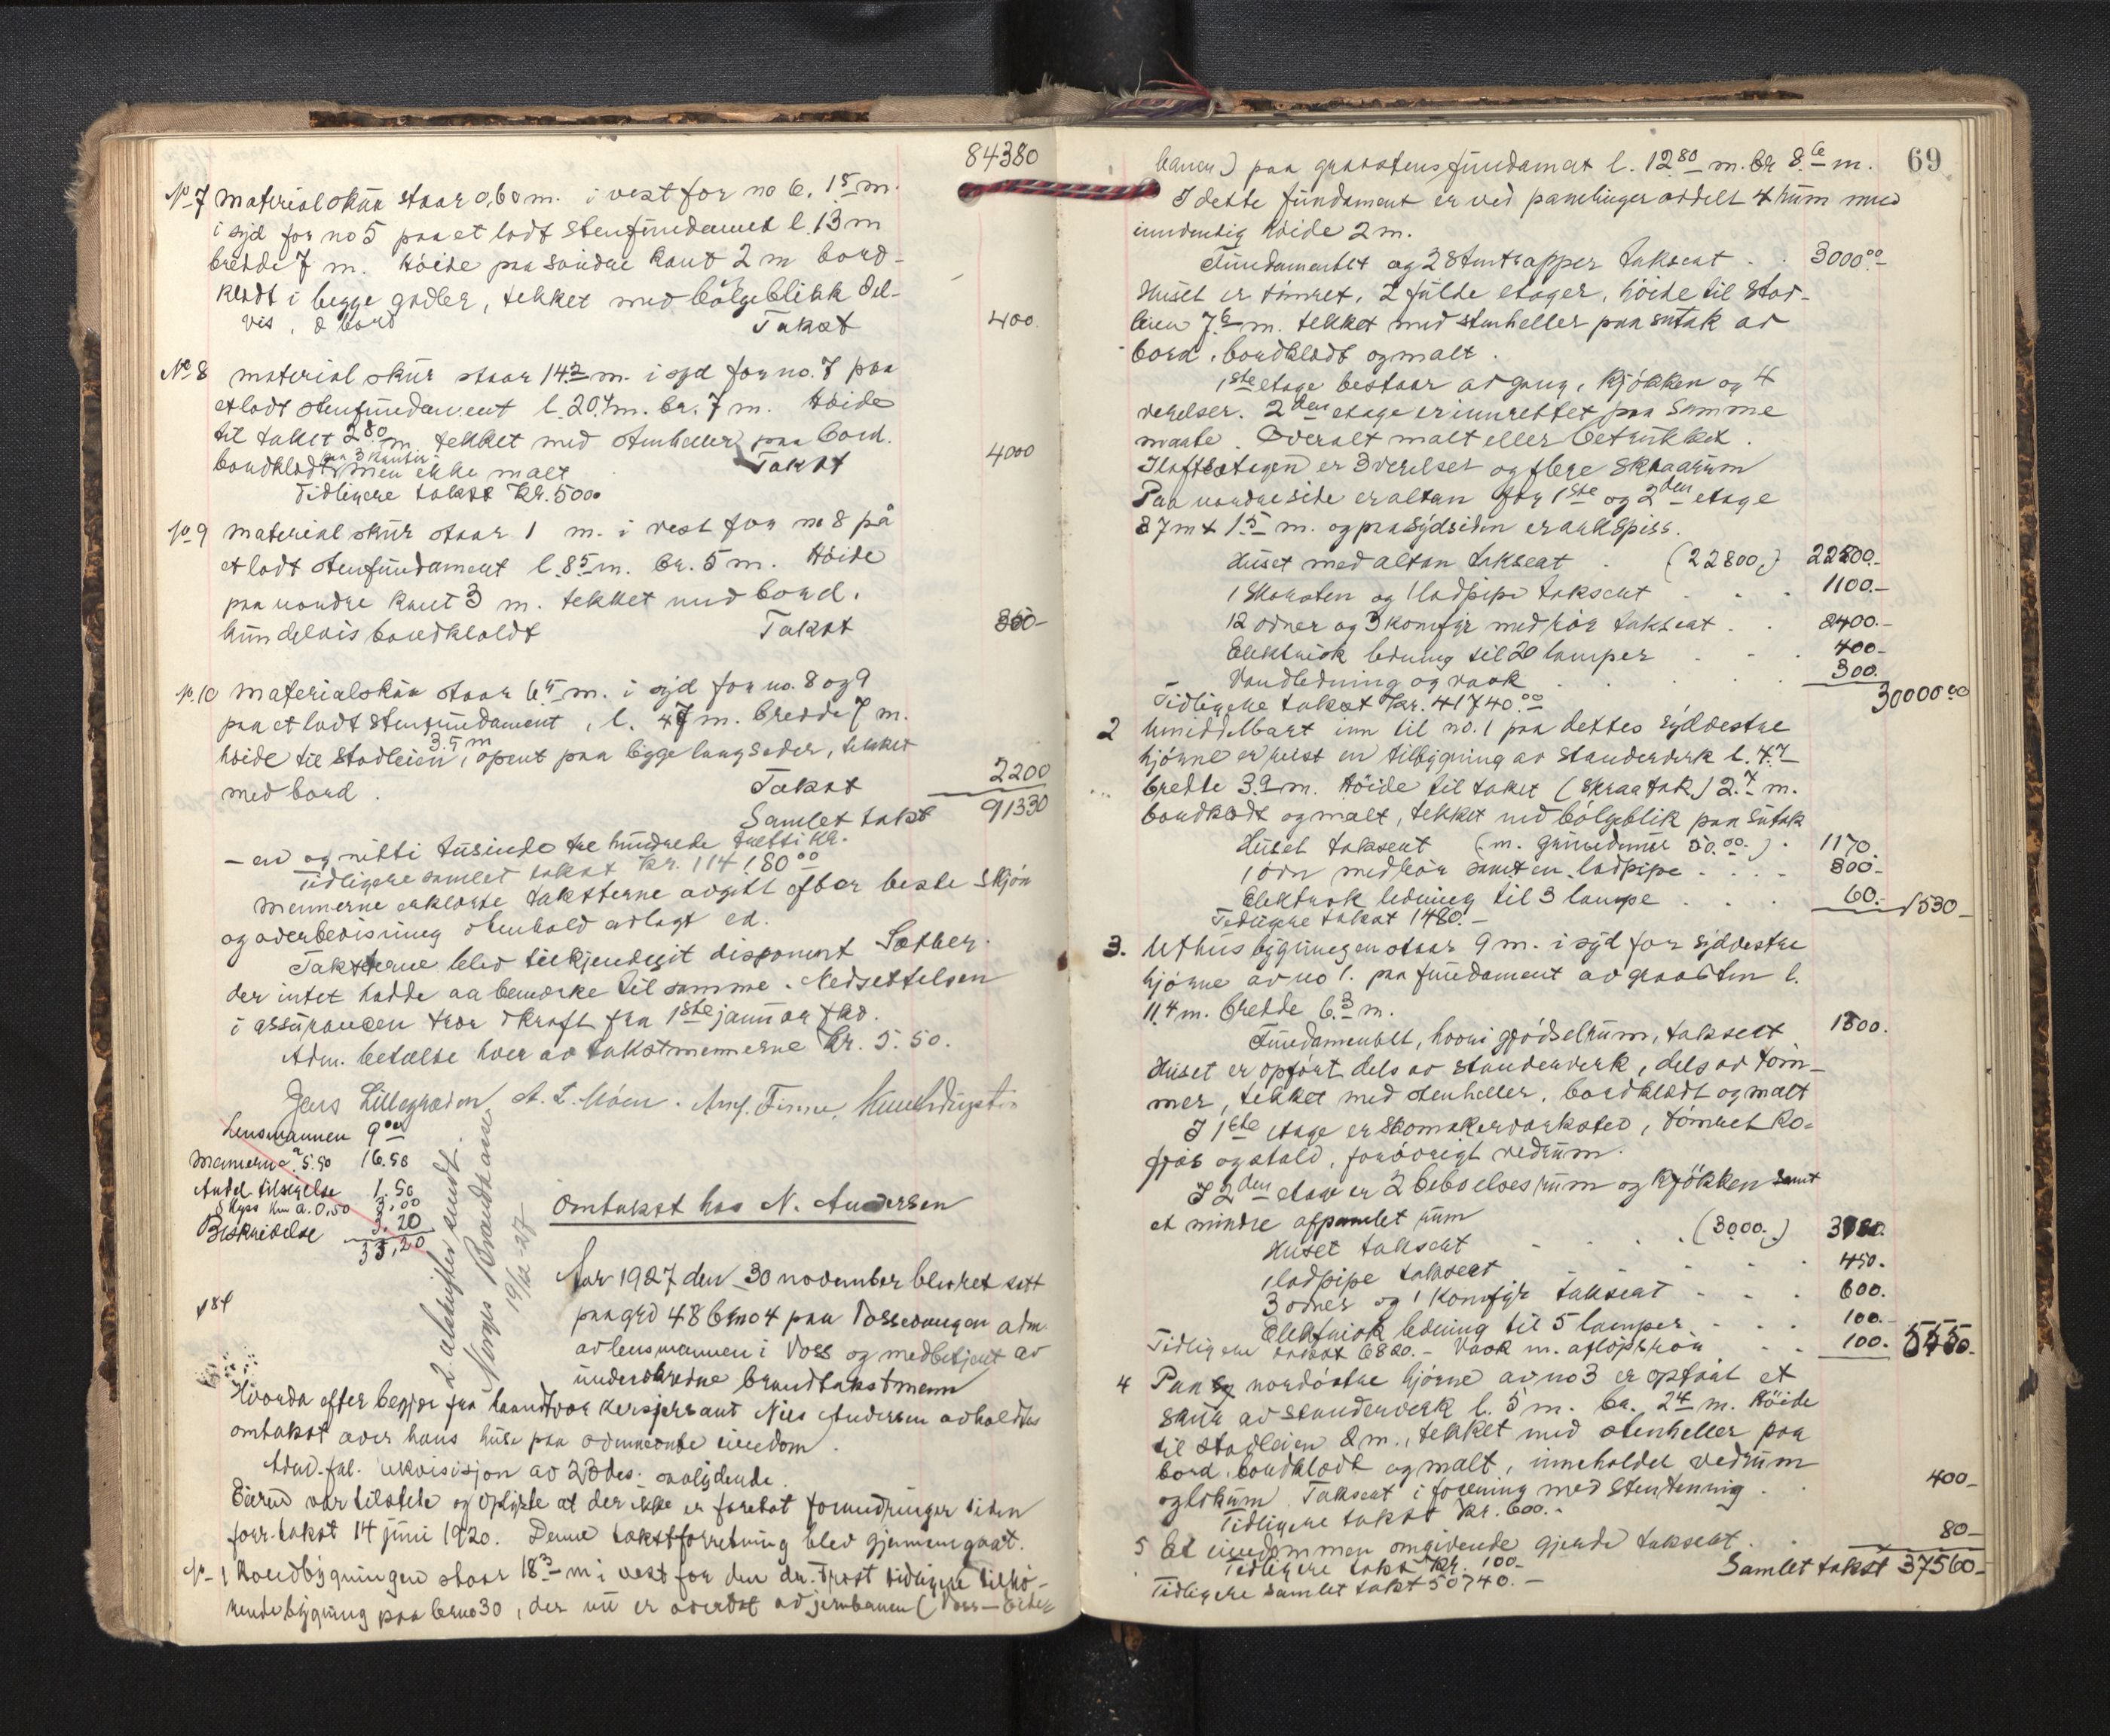 84380
No 7 Materialskur staar 0,60 m. i vest for no 6. 1.5 m.
i syd for no 5 paa et lødt stenfundament l. 13 m
bredde 7 m. Høide paa søndre kant 2 m bord-
klædt i begge gavler, tekket med bølgeblikk del-
vis, & bord Takst 400.
No 8 material skur staar 14.2 m. i syd for no. 7 paa
et lødt stenfundament l. 20.4 m. br. 7 m. Høide
til taket 2.80 m. tekket med stenheller paa bord.
bordklædt paa 3 kanter men ikke malt Takst 4000
Tidligere takst kr. 5000
No 9 material skur staar 1 m. i vest for no 8 på
et lødt stenfundament l. 8.5 m. br. 5 m. Høide
paa nordre kant 3 m. tekket med bord.
bordklædt Takst 350-
No. 10 Materialskur staar 6.5 m. i syd for no. 8 og 9
paa et lødt stenfundament, l. 47 m. bredde 7 m.
høide til stavleien 3.5 m, åpent paa begge langsider, tekket
med bord. Takst 2200
Samlet takst 91330
- en og nitti tusinde tre hundrede tretti kr.
Tidligere samlet takst kr. 114180.00
Mennerne erklærte taksterne avgitt efter beste skjøn
og overbevisning i henhold avlagt ed.
Taksterne blev tilkjendegit disponent Sæther
der intet hadde aa bemerke til samme. Nedsettelsen
i assurancen trær i kraft fra 1ste januar
Adm. betalte hver av takstmennerne kr. 5.50.
Jens Lillegraven A. L. Møen. Arnf. Finne.
Lensmannen 9.00
Mennerne a 5.50 16.50
Andel tilsigelse 1.50
Skyss km a. 0,50 3,00
Beskrivelse 3.20
33,20
2 utskrifter sendt
Norges Brandkasse
19/12-27
Omtakst hos N. Andersen
Aar 1927 den 30 november blev ret satt
paa gno 48 bno 4 paa Vossevangen adm.
av lensmannen i Voss og medbetjent av
underskrevne brandtakstmenn
Hvorda efter begjær fra handverkersjersant Nils Andersen avholdtes
omtakst over hans huse paa ovennevnte eiendom.
Adm. fræl. rekvisisjon av 23 ds. saalydende.
Eieren var tilstede og oplyste at der ikke er foretat forandringer siden
forr. takst 14 juni 1920. Denne takstforretning blev gjennemgaat.
No 1 Hovedbygningen staar 18.3 m i vest for den dr. Trost tidligere tilhø-
rende bygning paa bno 30, der nu er overdrat av jernbanen (Voss-
69
banen) paa graastensfundament l. 12.80 m. br 8.6 m.
I dette fundament er ved panelinger avdelt 4 rum med
innvendig høide 2 m.
Fundamentet og 2 stentrapper taksert 3000.00
Huset er tømret, 2 fulde etager, høide til stav-
leien 7.6 m. tekket med stenheller paa sutak av
bord. bordklædt og malt.
1ste etage bestaar av gang, kjøkken og 4
verelser. 2den etage er innrettet paa samme
maate. Overalt malt eller betrukket.
I loftsetagen er 3 verelser og flere skraarum
Paa nordre side er altan for 1ste og 2den etage
8 7 m x 1.5 m. og paa sydsiden er ark & spiss.
Huset med altan taksert (22800.) 22800.-
1 skorsten og 1 lodpipe taksert 1100.-
12 ovner og 3 komfyr med rør taksert 2400.-
Elektrisk ledning til 20 lamper 400-
Vandledning og vask 300.
Tidligere takst kr. 41740.00 30000.00
2 Umiddelbart inn til no. 1 paa dettes sydvestre
hjørne er reist en tilbygning av stenderverk l. 4.7
bredde 3.9 m. Høide til taket (skraatak) 2.7 m.
bordklædt og malt, tekket med bølgeblik paa sutak
Huset taksert (m. grundmur 50.00.) 1170.
1 ovn med rør samt en lodpipe 300-
Elektrisk ledning til 3 lampe 60.- 1530-
Tidligere takst 1480.-
3. Uthusbygningen staar 9 m. i syd for sydvestre
hjørne av no 1. paa fundament av graasten l.
11.4 m. bredde 6.3 m.
Fundamentet, hvori gjødselrum, taksert 1300.
Huset er opført dels av stenderverk, dels av tøm-
mer, tekket med stenheller, bordklædt og malt
I 1ste etage er skomakerverksted, tømret ko-
fjøs og stald, forøvrigt vedrum.
I 2den etage er 2 beboelsesrum og kjøkken samt
et mindre afpanelet rum
Huset taksert (3000.)
1 lodpipe taksert 450.
3 ovner og 1 komfyr taksert 600.
Elektrisk ledning til 5 lamper 100.-
Tidligere takst 6820.- Vask m. afløpsrør 100. 5550.-
4 Paa nordøstre hjørne av no 3 er opført et
skur av stenderverk l. 5 m. br. 2.4 m. Høide
til stavleien 2 m., tekket med stenheller paa
bord, bordklædt og malt, inneholder vedrum
og lokum. Taksert i forening med stensetning 400-
Tidligere takst kr. 600.-
5 Et eiendommen omgivende gjerde taksert 80-
Tidligere takst kr. 100-
Samlet takst 37560-
Tidligere samlet takst 50740.-